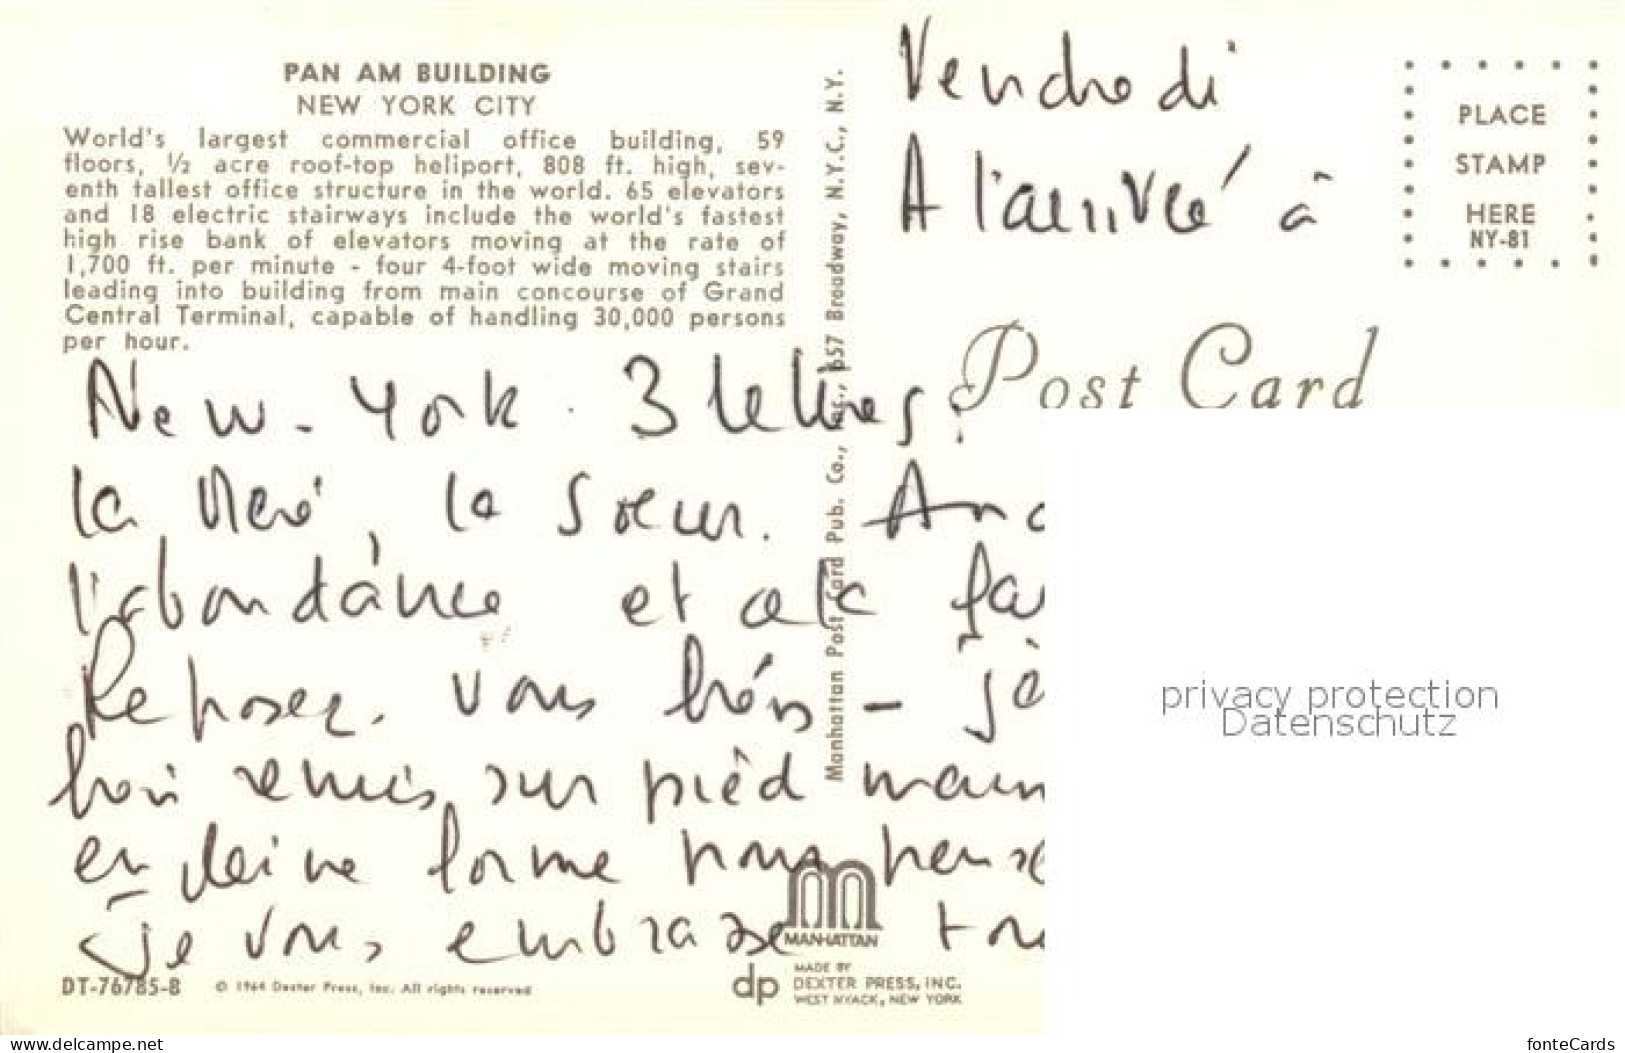 PAN AM BUILDING
NEW YORK CITY
World's largest commercial office building, 59
floors, ½ acre roof-top heliport, 808 ft. high, sev-
enth tallest office structure in the world. 65 elevators
and 18 electric stairways include the world's fastest
high rise bank of elevators moving at the rate of
1,700 ft. per minute - four 4-foot wide moving stairs
leading into building from main concourse of Grand
Central Terminal, capable of handling 30,000 persons
per hour.
Vendredi
A l'arrivée à
New-York. 3 lettres:
la Mère, la Soeur.
l'abondance et
Reposez. vous
remis, sur pied
en pleine forme pour
Je vous embrasse
PLACE
STAMP
HERE
NY-81
Post Card
Manhattan Post Card Pub. Co., Inc., 657 Broadway, N.Y.C., N.Y.
privacy protection
Datenschutz
MANHATTAN
DT-76785-8
© 1964 Dexter Press, Inc. All rights reserved
dp
MADE BY
DEXTER PRESS, INC.
WEST NYACK, NEW YORK
www.delcampe.net
fonteCards